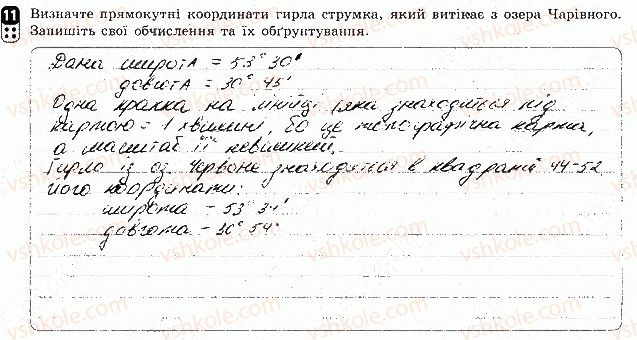 11 Визначте прямокутні координати гирла струмка, який витікає з озера Чарівного.
Запишіть свої обчислення та їх обґрунтування.
Дана широта = 53° 30'
довгота = 30° 45'
Одна крапка на лінійці яка знаходиться під
картою = 1 хвилині, бо це топографічна карта,
а масштаб її невеликий.
Гирло із оз. Червоне знаходиться в квадраті 44-52
його координати:
широта - 53° 31'
довгота - 30° 54'
vshkole.com